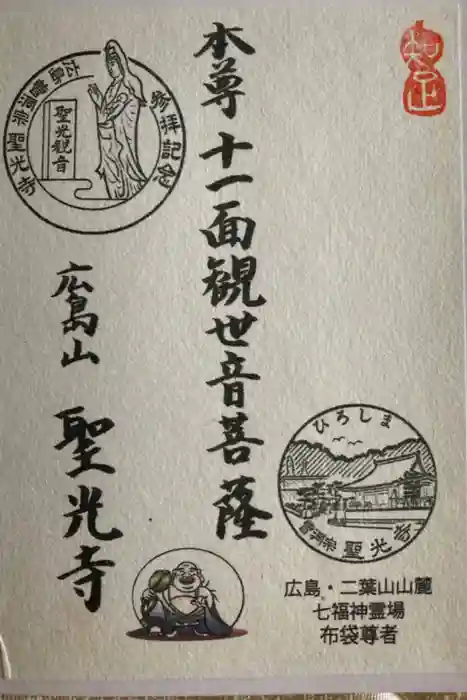 知足
本尊十一面観世音菩薩
広島山 聖光寺
広島 曹洞宗 聖光寺
参拝記念
聖光観音
ひろしま
曹洞宗 聖光寺
広島・二葉山山麓
七福神霊場
布袋尊者